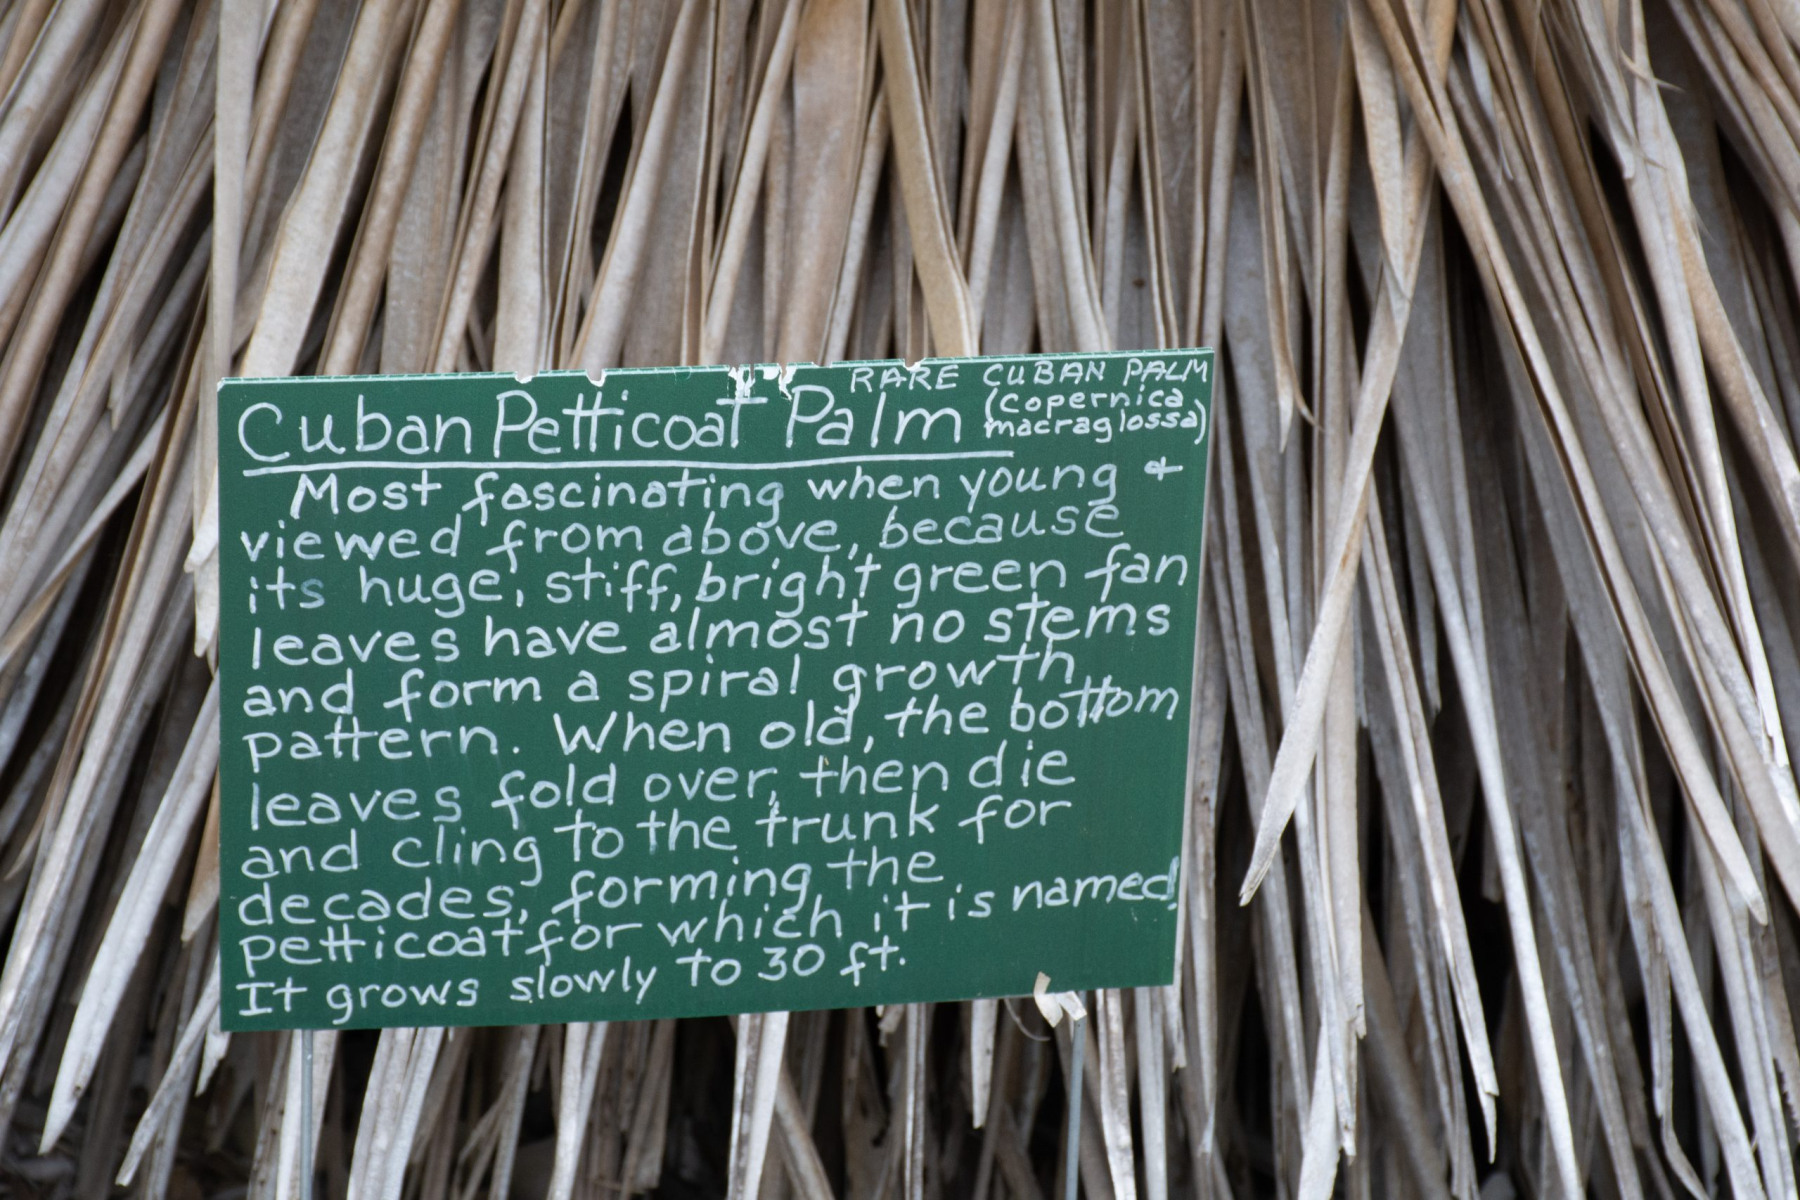 RARE CUBAN PALM
Cuban Petticoat Palm
(copernica
macraglossa)
Most fascinating when young &
viewed from above, because
its huge, stiff, bright green fan
leaves have almost no stems
and form a spiral growth
pattern. When old, the bottom
leaves fold over, then die
and cling to the trunk for
decades, forming the
petticoat for which it is named.
It grows slowly to 30 ft.